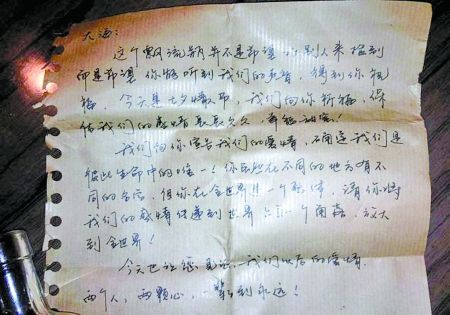 大海：
这个飘流瓶并不是希望 别人来捡到
而是希望 你能听到我们的声音，得到你祝
福，今天是七夕情人节，我们向你祈福，保
佑我们的爱情长长久久，幸福甜蜜！
我们向你宣告我们的爱情，不同这我们是
彼此生命中的唯一！你虽然在不同的地方有不
同的名字，但你在全世界 一个 体，请你将
我们的感情传递到世界 每一个角落，放大
到全世界！
今天也让您 见证，我们以后的爱情
两个人，两颗心，一辈到永远！